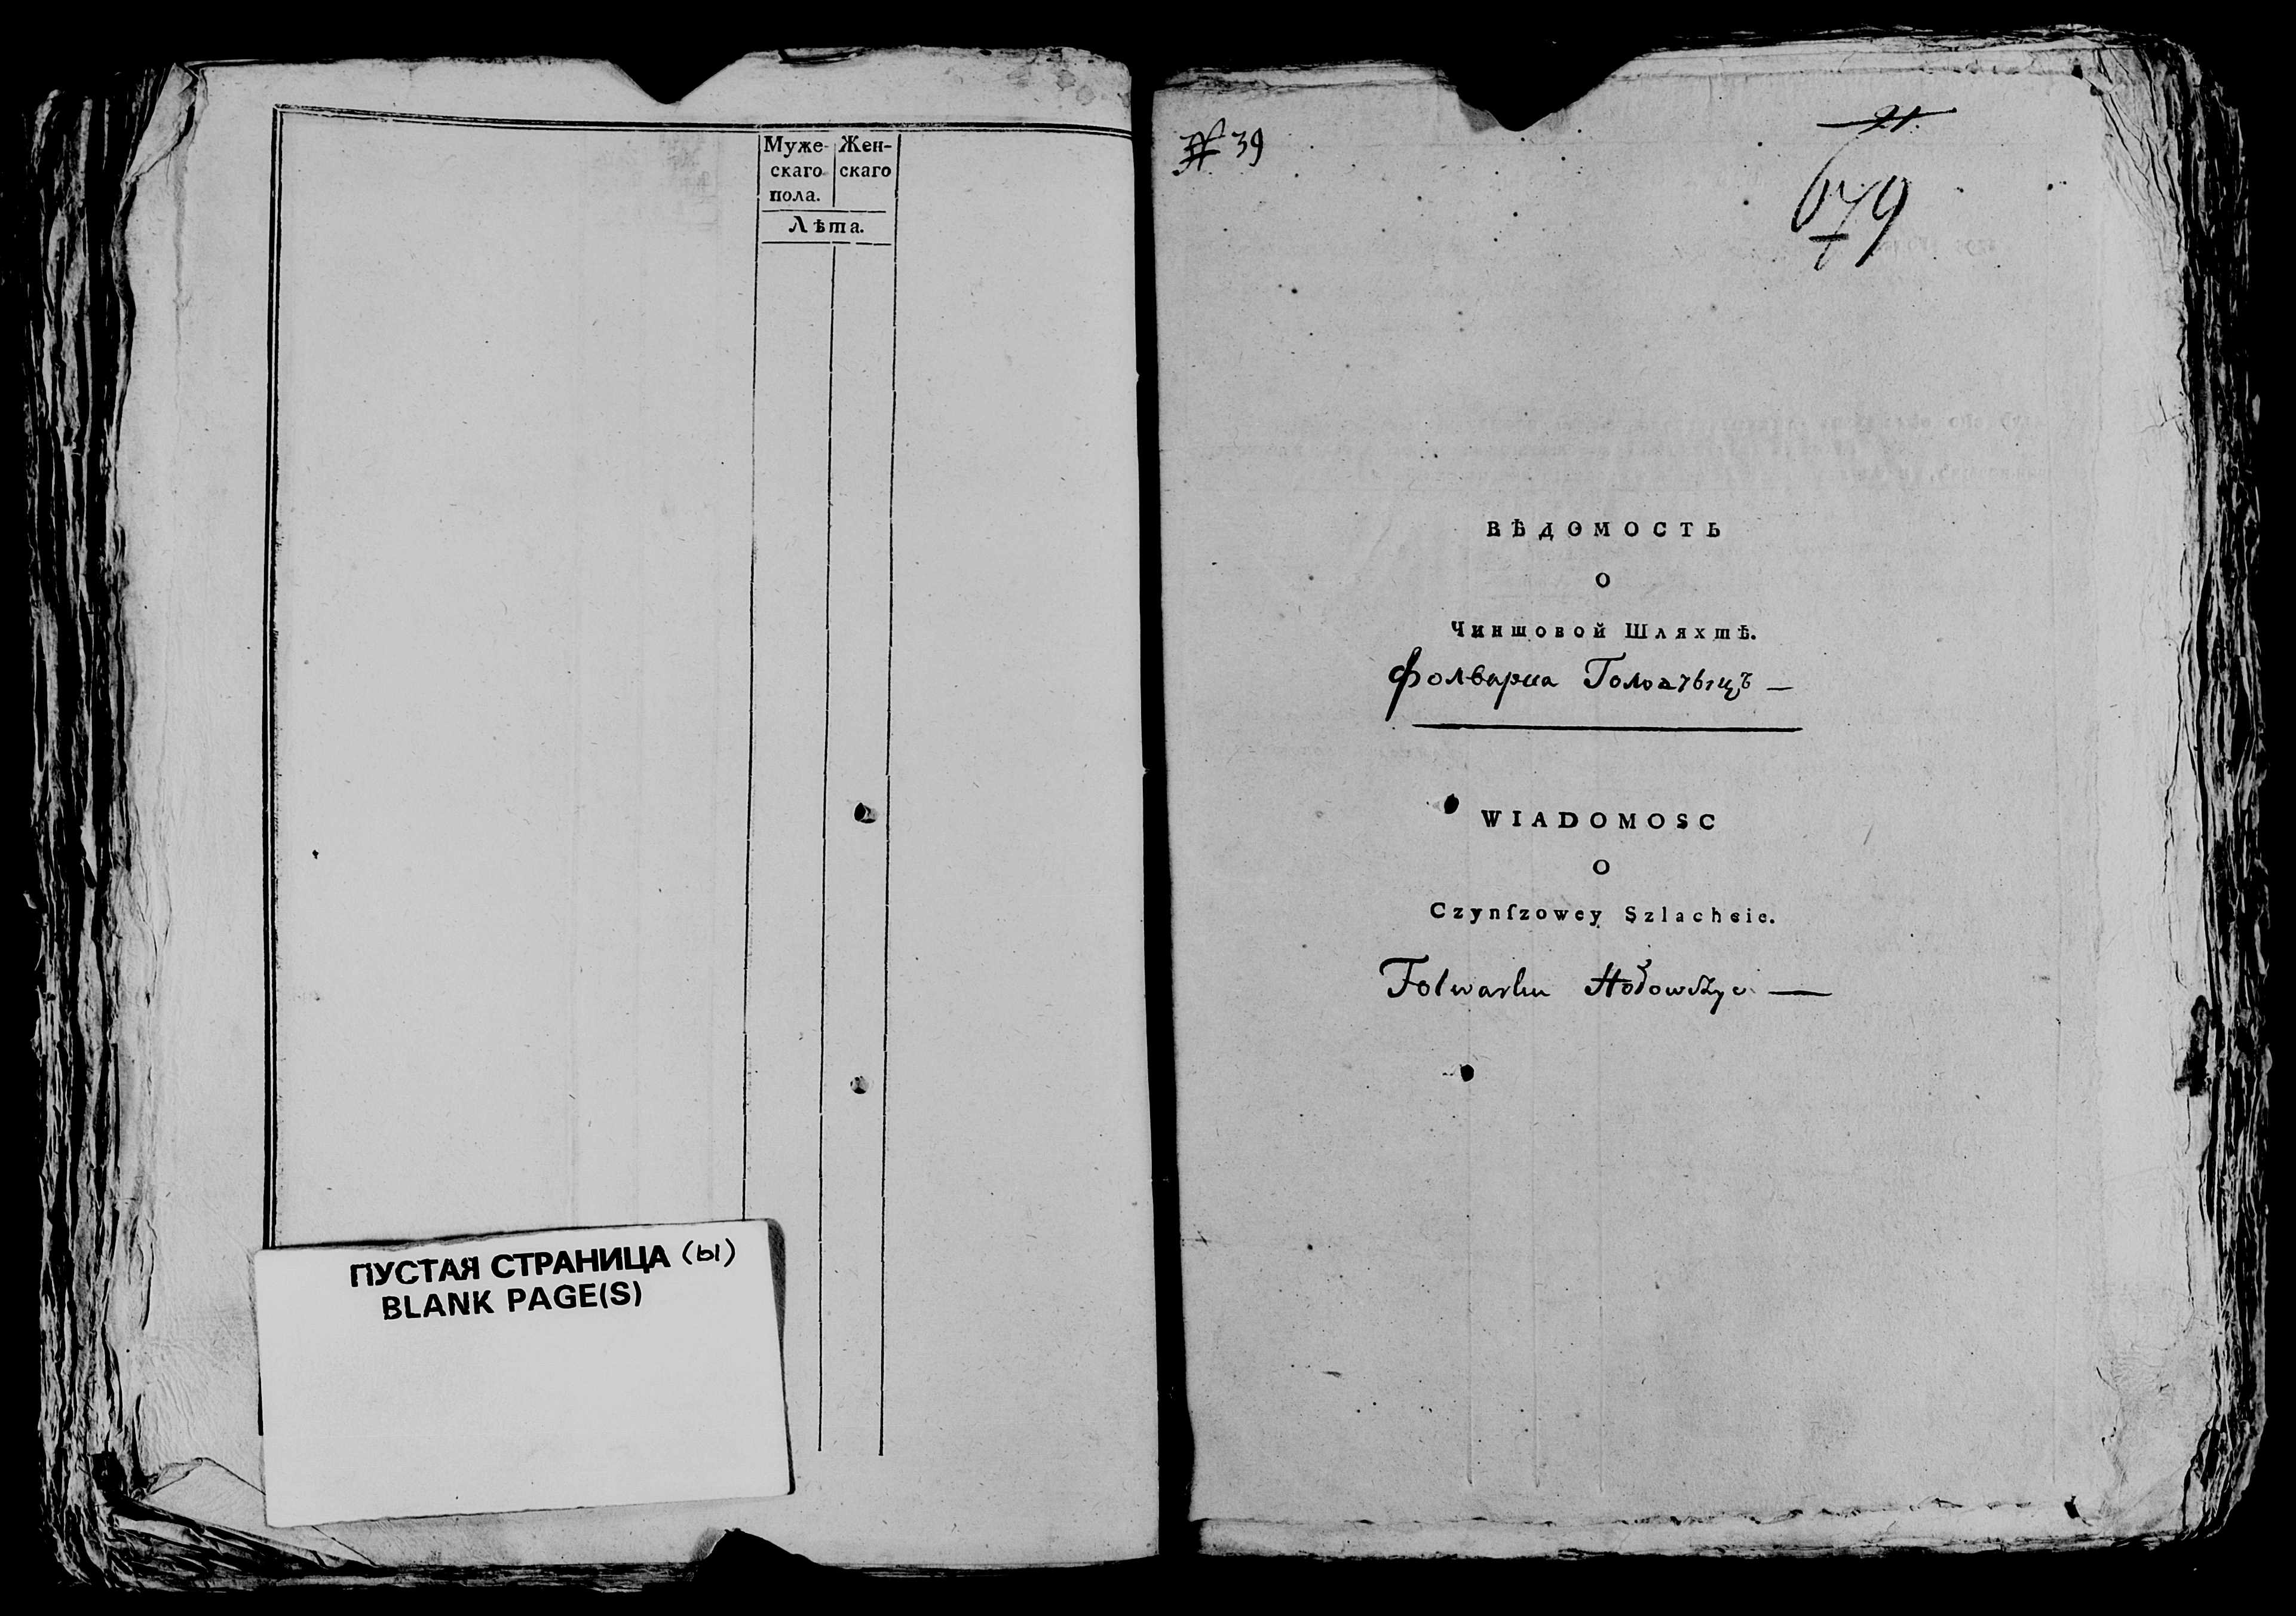 Муже-
скаго
пола.
Жен-
скаго
Лѣта.
ПУСТАЯ СТРАНИЦА (ы)
BLANK PAGE(S)
№ 39
21.
679
ВѢДОМОСТЬ
О
Чиншовой Шляхтѣ.
Фолварка
WIADOMOSC
O
Czynſzowey Szlachcie.
Folwarku